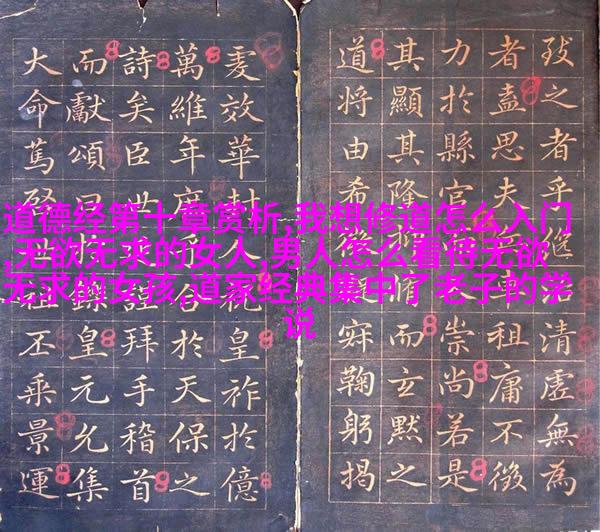 道德经第十章赏析,我想修道怎么入门
,无欲无求的女人,男人怎么看待无欲
无求的女孩,道家经典集中了老子的学
说
之者乎清虛無為
者盍思夫祖庸不徵
力於縣官崇尚若是
其顯其隆而玄默之
道將由希鞠躬揭
虔效華封祝皇祚於億
萬維年合於天保之
詩矣臣世拜手稽首
而獻頌曰皇元允集
大命篤啓世丕乘景運